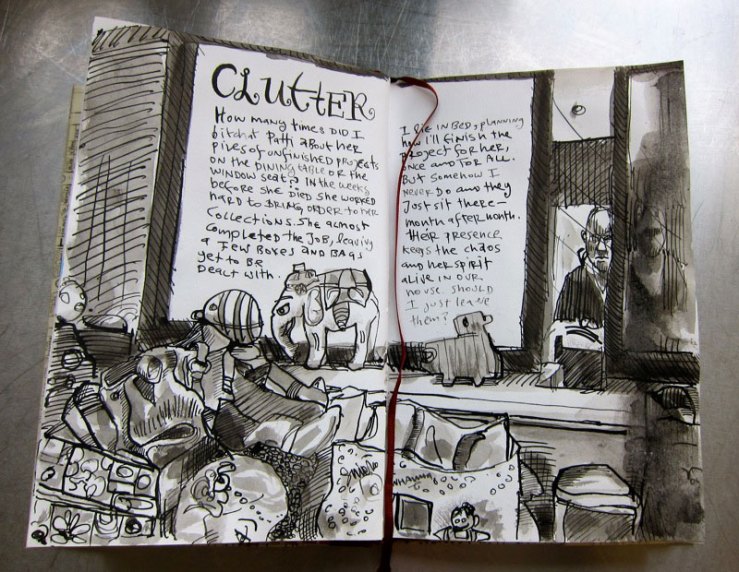 CLUTTER
How many times DID I
bitch at Patti about her
Piles of unfinished projects,
on the DINING table or the
window seat? In the weeks
before she died she worked
hard to BRING ORDER to her
collections. She almost
completed the job, leaving
a few Boxes and BAGS
yet to be
Dealt with.
I lie in BED, planning
how I'll finish the
project for her,
once and for all.
But somehow I
never do and they
Just sit there—
month after month.
their presence
keeps the chaos
and her spirit
alive in our
house. Should
I just leave
them?